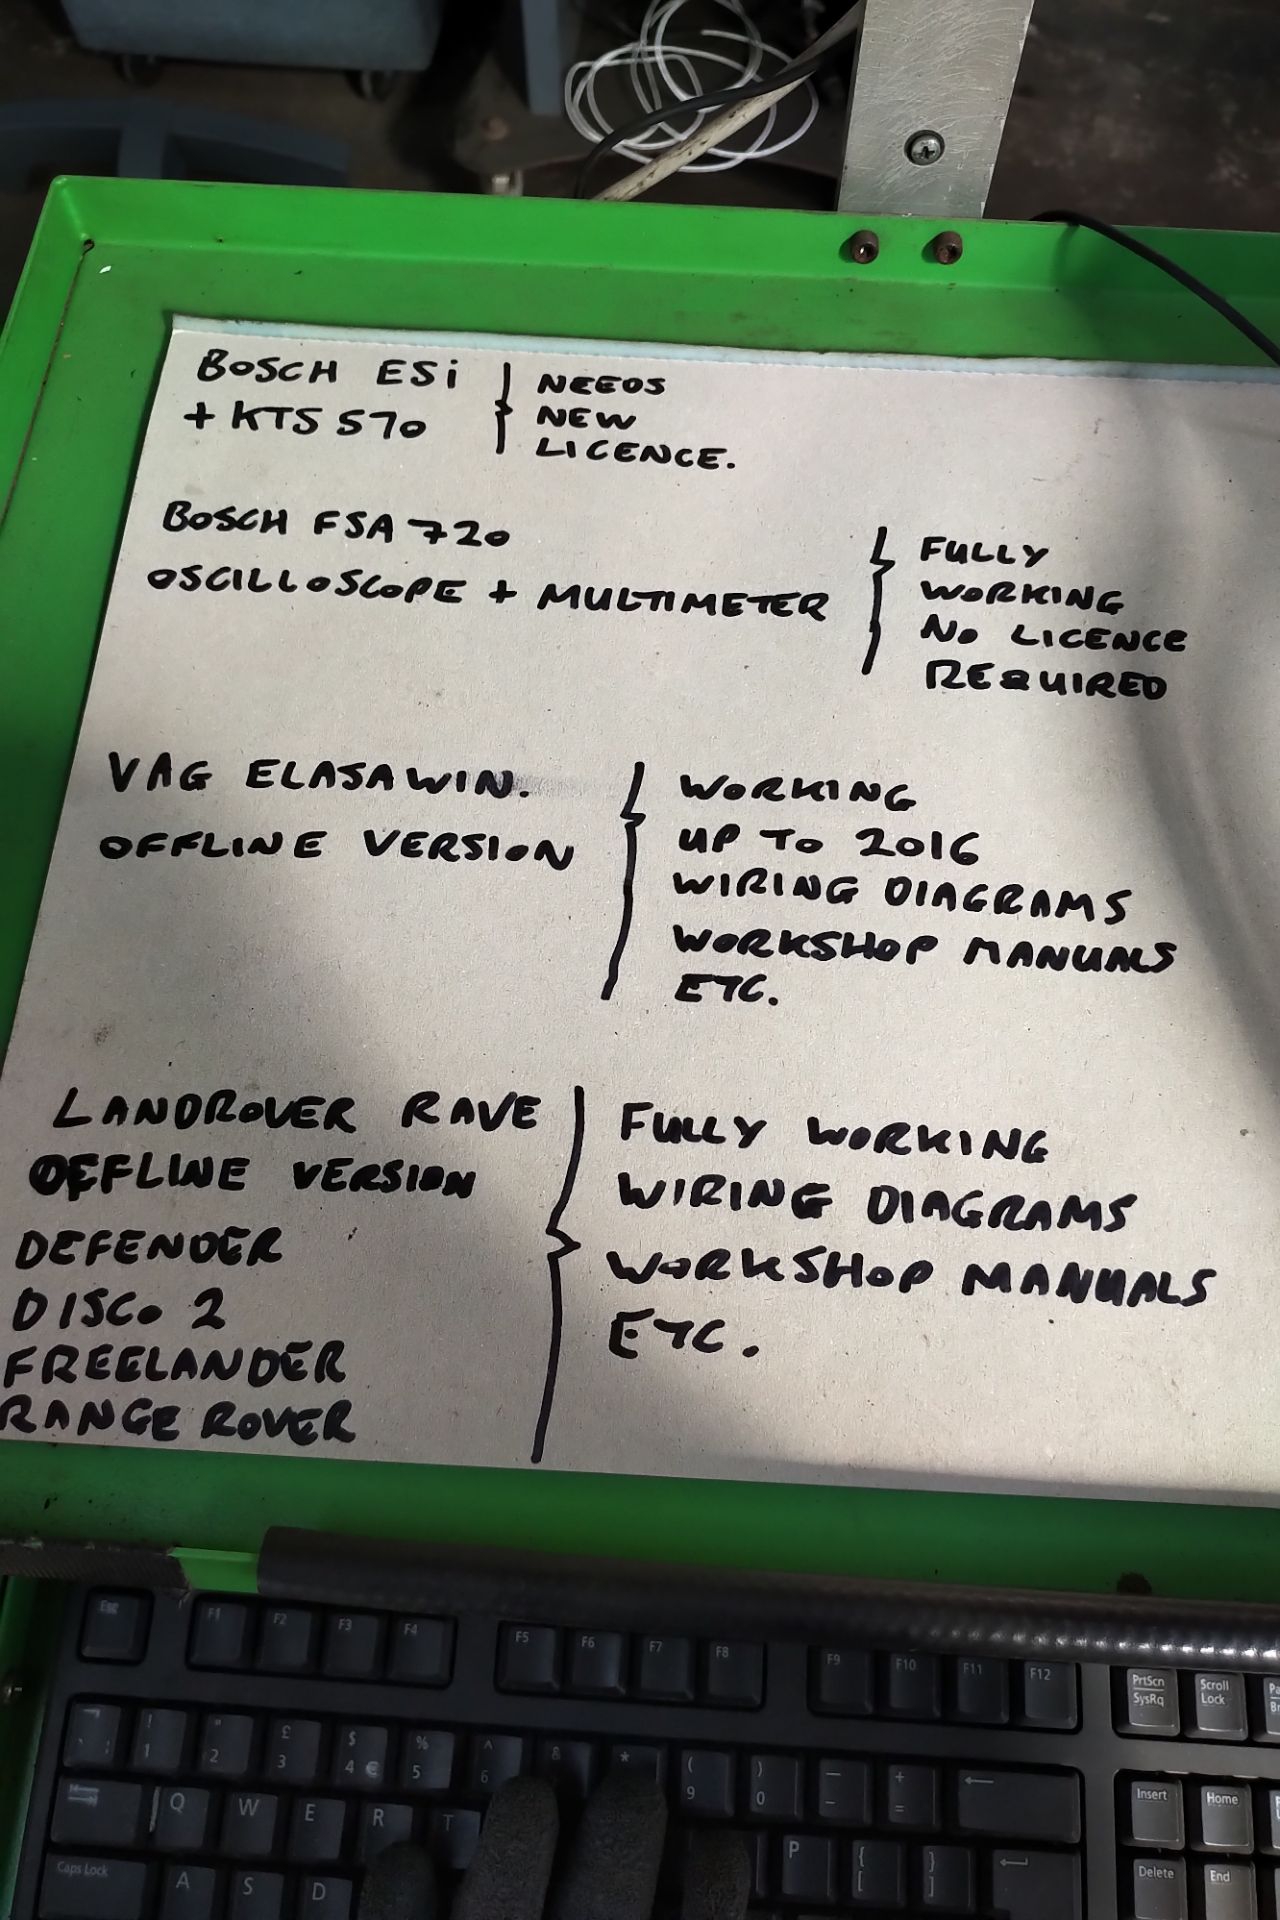 BOSCH ESi
+ KTS 570
NEEDS
NEW
LICENCE.
BOSCH FSA 720
OSCILLOSCOPE + MULTIMETER
FULLY
WORKING
NO LICENCE
REQUIRED
VAG ELASAWIN.
OFFLINE VERSION
WORKING
UP TO 2016
WIRING DIAGRAMS
WORKSHOP MANUALS
ETC.
LANDROVER RAVE
OFFLINE VERSION
DEFENDER
DISCO 2
FREELANDER
RANGE ROVER
FULLY WORKING
WIRING DIAGRAMS
WORKSHOP MANUALS
ETC.
Esc F1 F2 F3 F4 F5 F6 F7 F8 F9 F10 F11 F12 PrtScn SysRq Scroll Lock
! 1 " 2 £ 3 $ 4 € % 5 ^ 6 & * ( 9 ) 0 _ - + = Insert Home
Q W E R T P { [ } ] Delete End
Caps Lock A S D